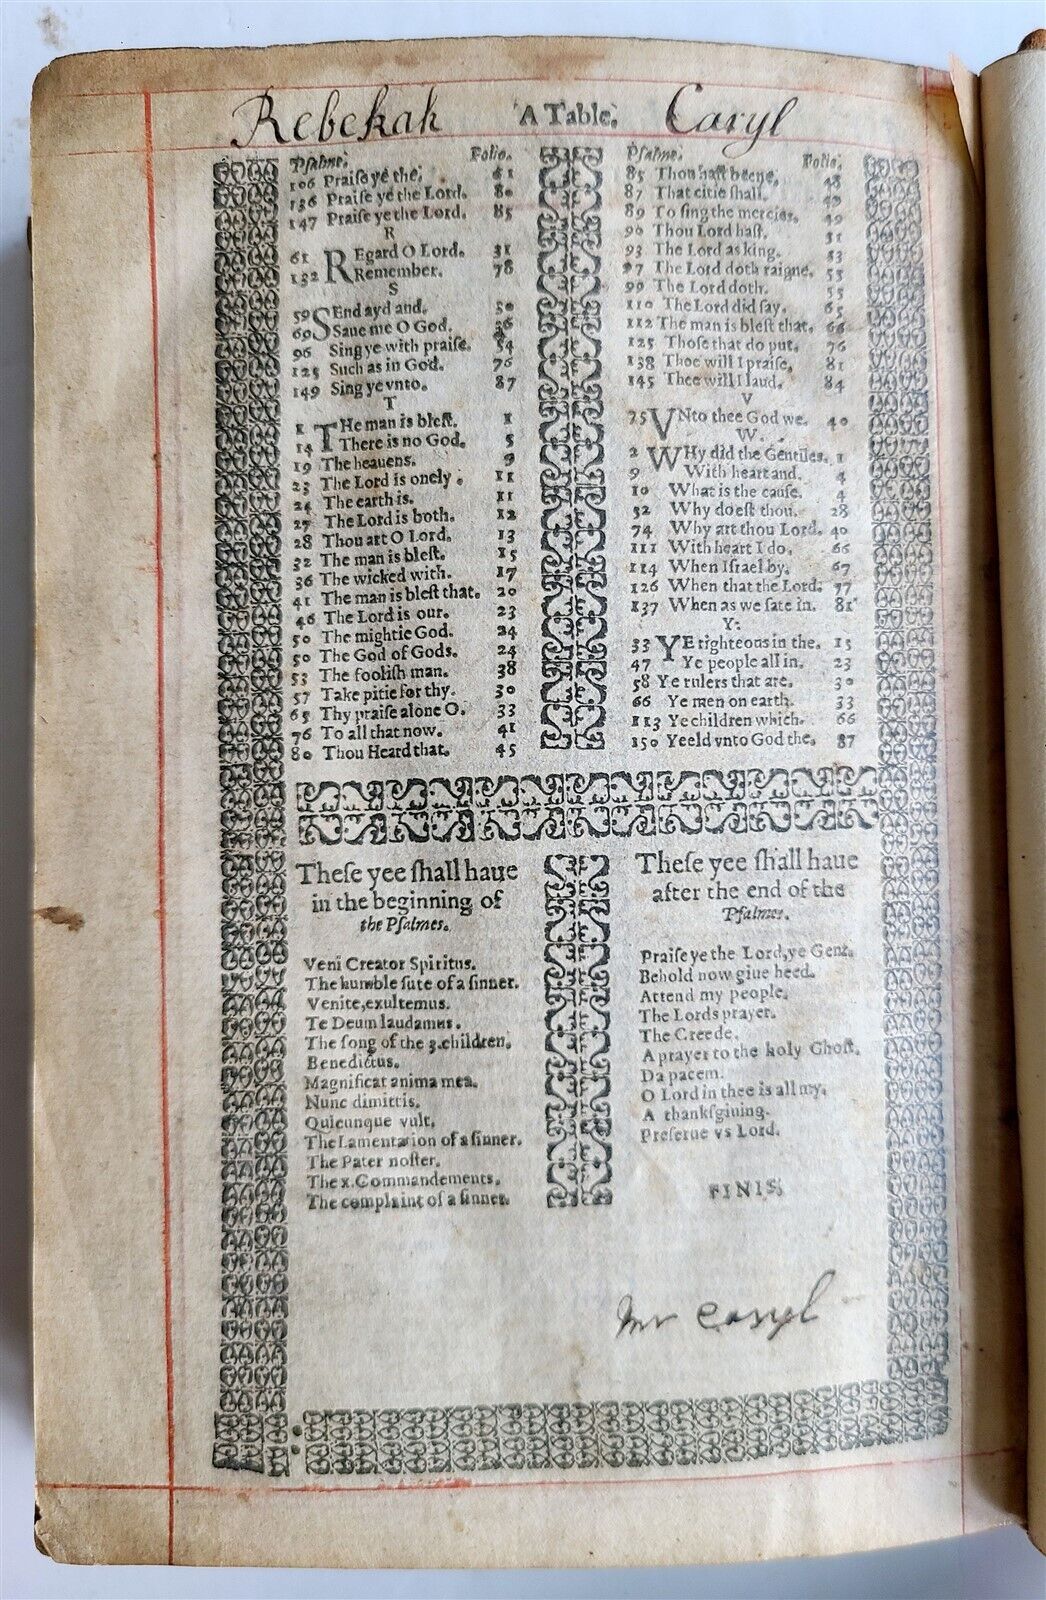 Rebekah A Table. Caryl
Psalme. Folio.
106 Praise ye the. 61
136 Praiſe ye the Lord. 80
147 Praiſe ye the Lord. 85
R
61 REgard O Lord. 31
132 Remember. 78
S
59 SEnd ayd and. 50
69 Saue me O God. 36
96 Sing ye with praiſe. 54
125 Such as in God. 76
149 Sing ye vnto. 87
T
1 THe man is bleſt. 1
14 There is no God. 5
19 The heauens. 9
23 The Lord is onely. 11
24 The earth is. 11
27 The Lord is both. 12
28 Thou art O Lord. 13
32 The man is bleſt. 15
36 The wicked with. 17
41 The man is bleſt that. 20
46 The Lord is our. 23
50 The mightie God. 24
50 The God of Gods. 24
53 The fooliſh man. 38
57 Take pitie for thy. 30
65 Thy praiſe alone O. 33
76 To all that now. 41
80 Thou Heard that. 45
Pſalme. Folio.
85 Thou haſt beene. 48
87 That citie ſhall. 49
89 To ſing the mercies. 49
90 Thou Lord haſt. 51
93 The Lord as king. 53
97 The Lord doth raigne. 55
99 The Lord doth. 55
110 The Lord did ſay. 65
112 The man is bleſt that. 66
125 Thoſe that do put. 76
138 Thee will I praiſe. 81
145 Thee will I laud. 84
V
75 VNto thee God we. 40
W.
2 WHy did the Gentiles. 1
9 With heart and. 4
10 What is the cauſe. 4
52 Why doeſt thou. 28
74 Why art thou Lord. 40
111 With heart I do. 66
114 When Iſrael by. 67
126 When that the Lord. 77
137 When as we ſate in. 81
Y:
33 YE righteous in the. 15
47 Ye people all in. 23
58 Ye rulers that are. 30
66 Ye men on earth. 33
113 Ye children which. 66
150 Yeeld vnto God the. 87
Theſe yee ſhall haue
in the beginning of
the Pſalmes.
Veni Creator Spiritus.
The humble ſute of a ſinner.
Venite, exultemus.
Te Deum laudamus.
The ſong of the 3. children.
Benedictus.
Magnificat anima mea.
Nunc dimittis.
Quicunque vult.
The Lamentation of a ſinner.
The Pater noſter.
The x. Commandements.
The complaint of a ſinner.
Theſe yee ſhall haue
after the end of the
Pſalmes.
Praiſe ye the Lord, ye Gent.
Behold now giue heed.
Attend my people.
The Lords prayer.
The Creede.
A prayer to the holy Ghoſt.
Da pacem.
O Lord in thee is all my.
A thankſgiuing.
Preſerue vs Lord.
FINIS.
Mr Caryl